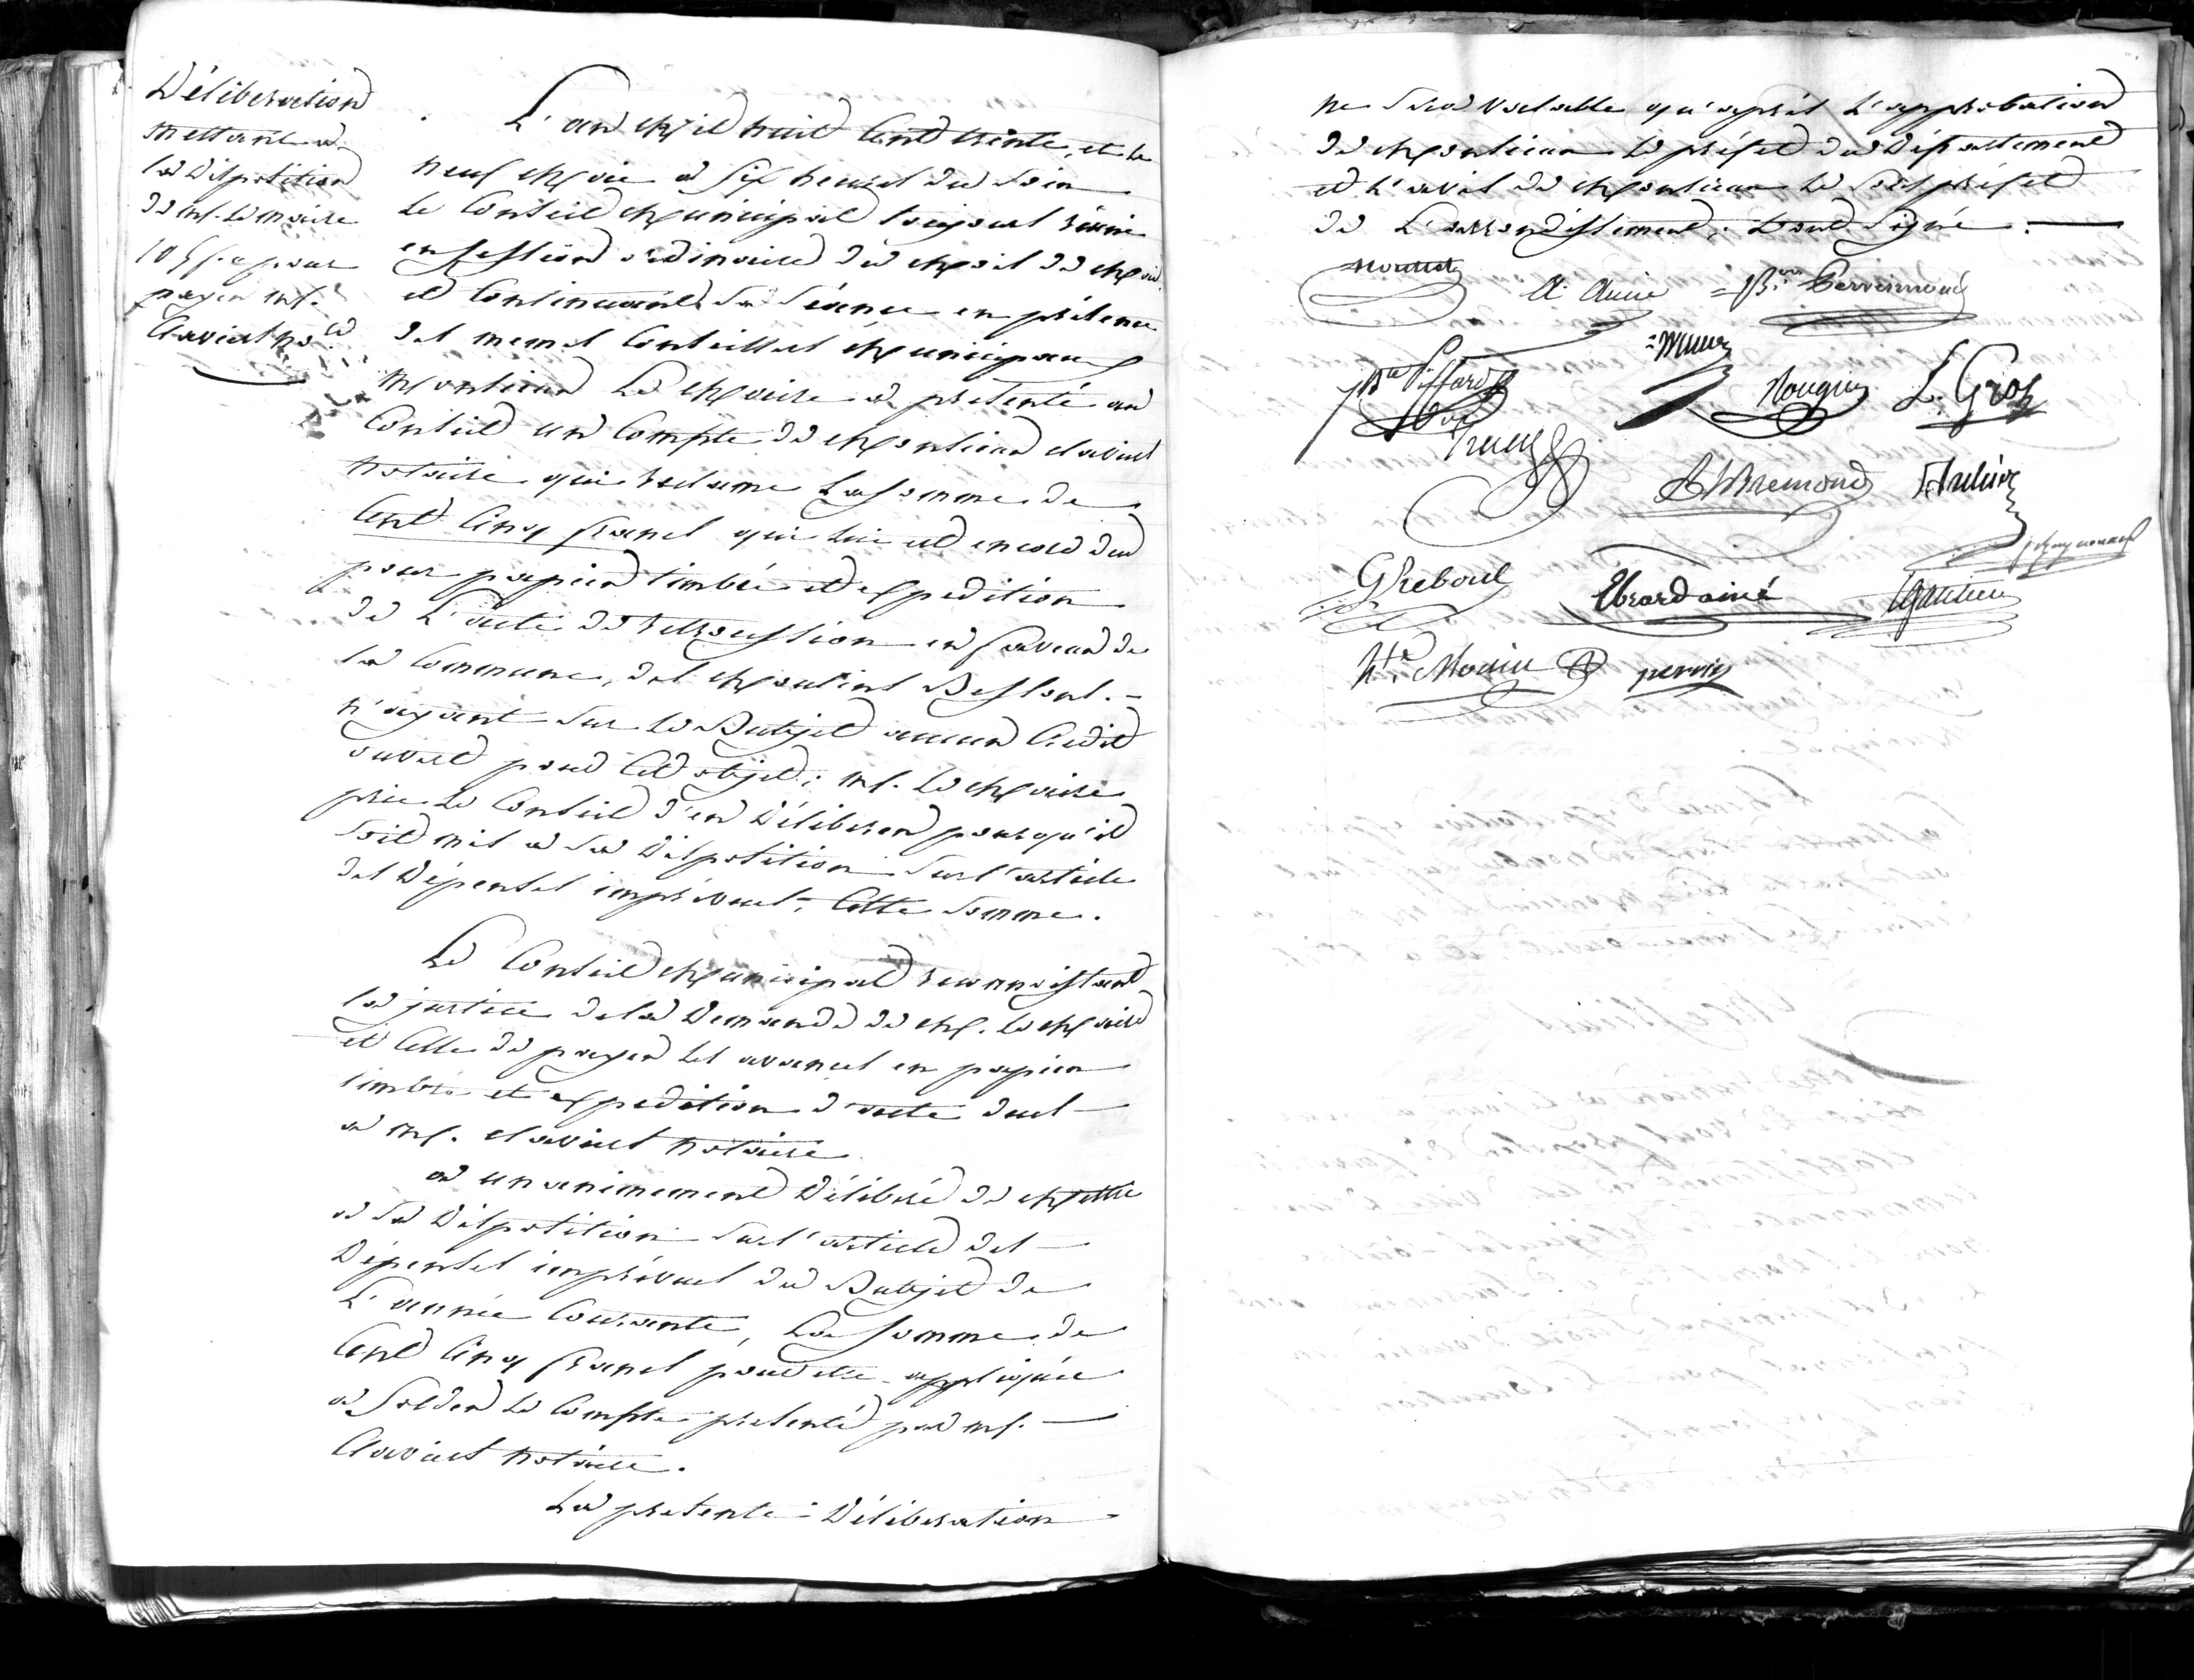 Délibération
mettant à
la disposition
de mr. le maire
105 f. pour
payer mr.
Claviers no.re
L'an mil huit cent trente, et le
neuf mai à six heures du soir
le Conseil Municipal toujours réuni
en session ordinaire du mois de mai
et continuant sa séance en présence
des memes Conseillers Municipaux
Monsieur le Maire a presenté au
Conseil un Compte de Monsieur Claviers
notaire qui reclame la somme de
Cent Cinq francs qui lui est encore du
pour papier timbré et expedition
de l'acte de retrocession en faveur de
la Commune, des Moulins Bessons.
n'ayant sur le Budjet aucun Crédit
ouvert pour cet objet; mr. le Maire
prie le Conseil d'en Délibérer pour qu'il
soit mis à sa Disposition sur l'article
des Dépenses imprévues, Cette somme.
Le Conseil Municipal reconnaissant
la justice de la Demande de M. le Maire
et celle de payer les avances en papier
timbré et expedition d'acte dues
à mr. Claviers notaire
a unanimement Délibéré de Mettre
à sa Disposition sur l'article des
Dépenses imprévues du Budjet de
L'année Courante, La somme de
Cent Cinq francs pour etre appliquée
à solder le Compte presenté par mr.
Claviers notaire.
La presente Délibération
ne sera valable qu'après l'approbation
de Monsieur le préfet du Département
et l'avis de Monsieur le Sous préfet
de L'arrondissement; Dont Signé.
A. Aune
J. B.te Siffard
Rougier L. Gros
Truc
Bremond
G Reboul Ebrard ainé Gautier
h.te Mouin perrin